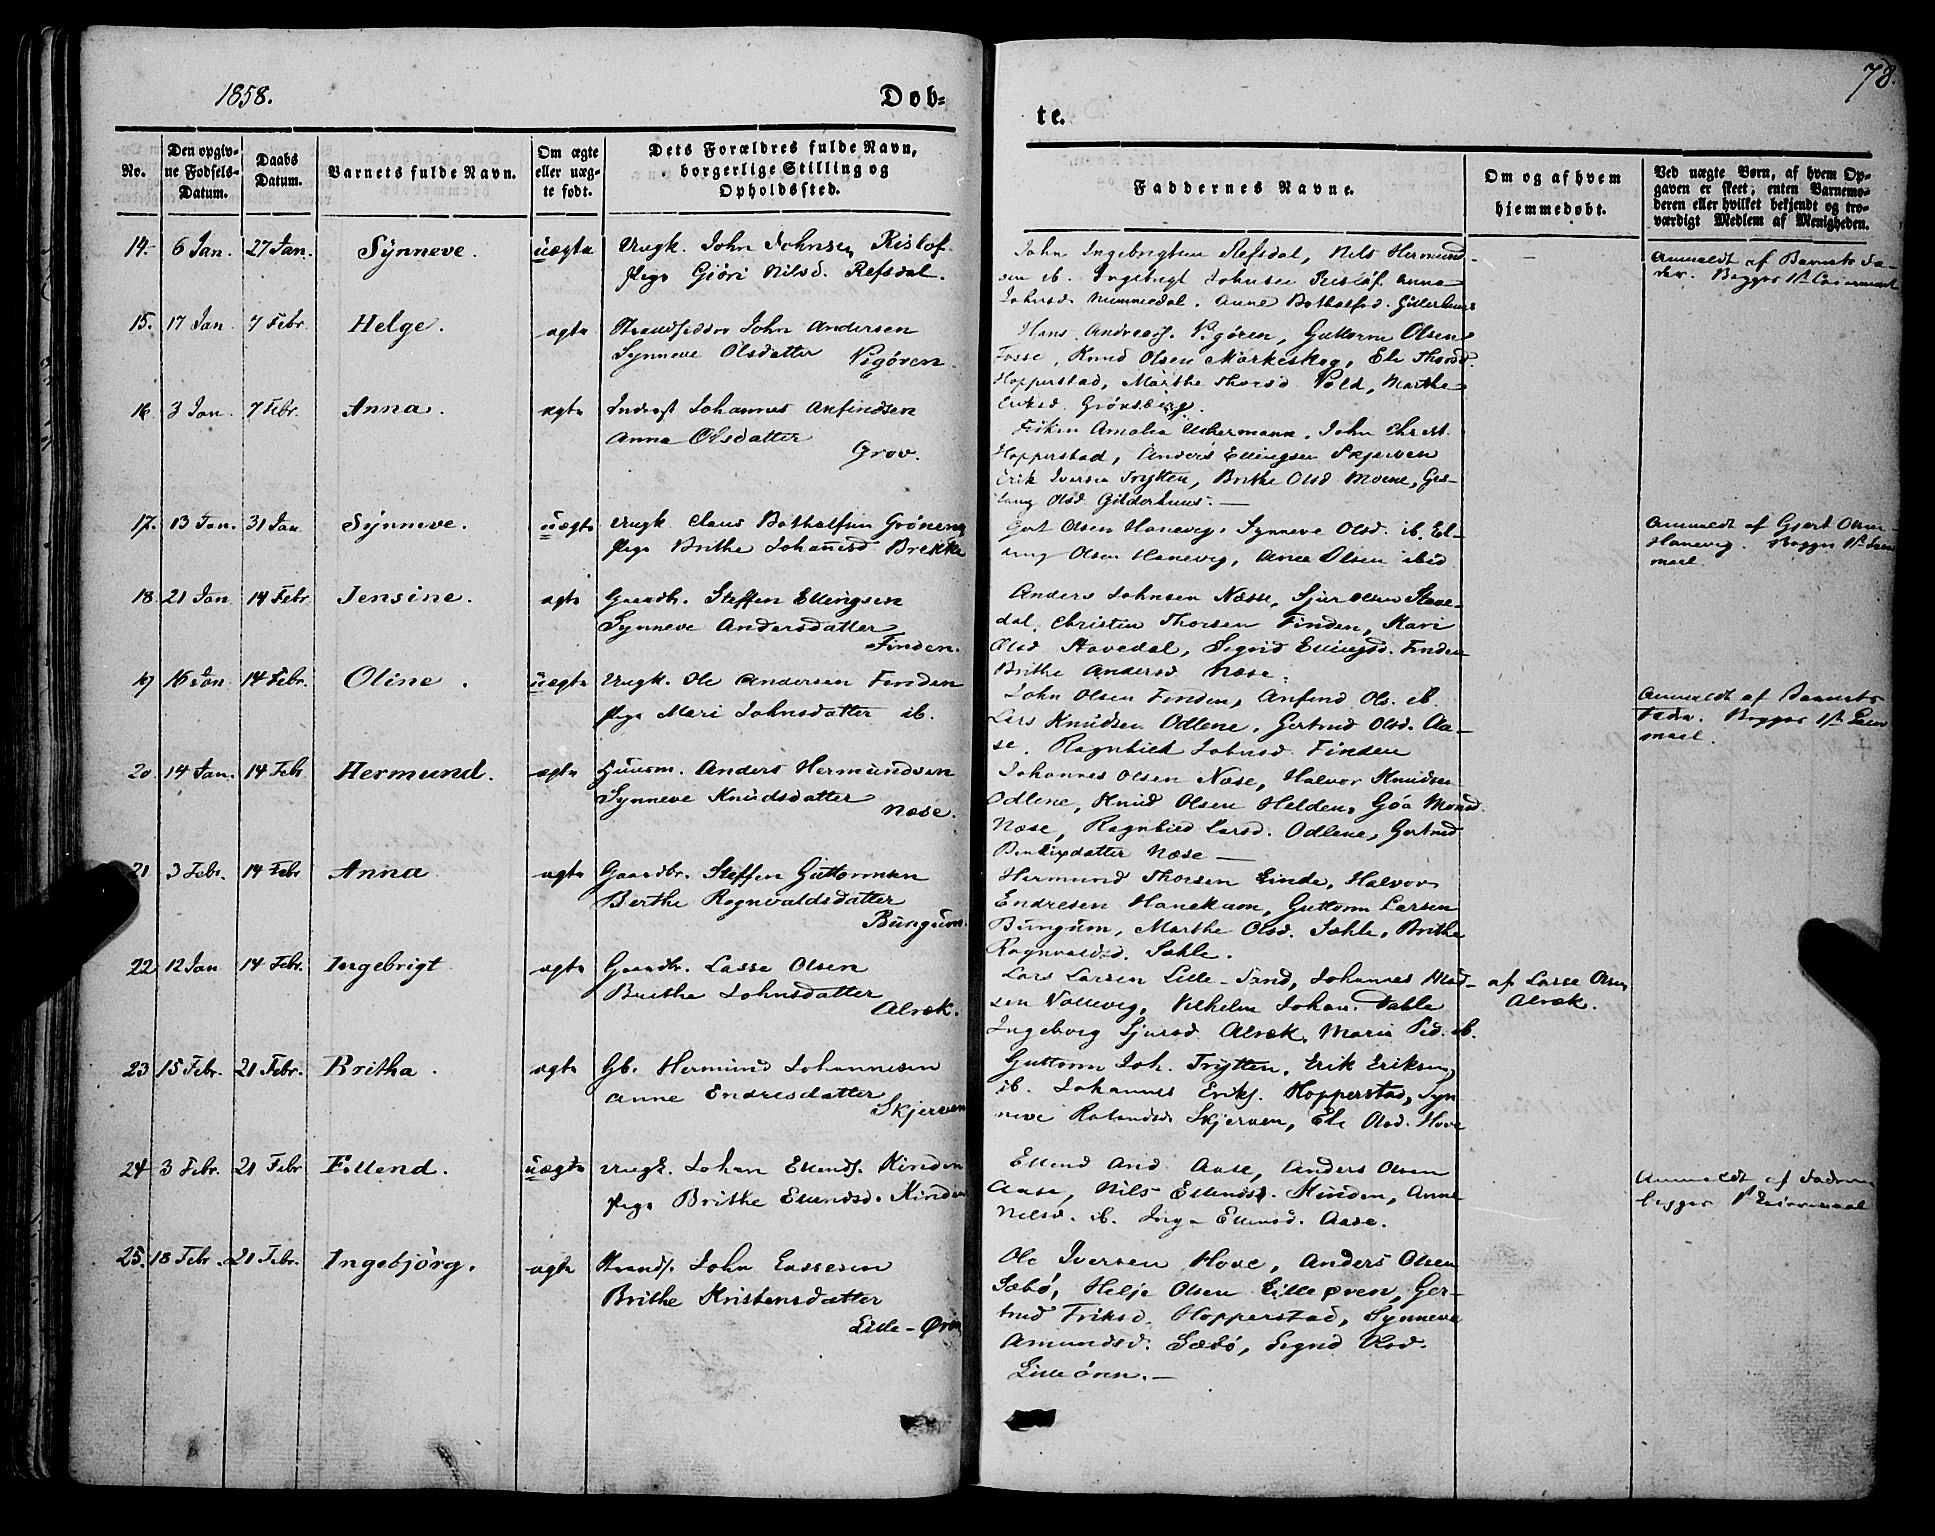 1858.
Døb-
te.
78.
No.
Den opgiv-
ne Fødsels-
Datum.
Daabs
Datum.
Barnets fulde Navn.
Om ægte
eller uæg-
te født.
Dets Forældres fulde Navn,
borgerlige Stilling og
Opholdssted.
Faddernes Navne.
Om og af hvem
hjemmedøbt.
Ved uægte Børn, af hvem Op-
gaven er skeet; enten Barnemo-
deren eller hvilket bekjendt og tro-
værdigt Medlem af Menigheden.
14. 6 Jan. 27 Jan. Synneve. uægte Ungk. John Johnsen Rislof
Pige Giöri Nilsd. Refsdal.
John Ingebrigtsen Refsdal, Nils Hermund-
sen ib. Ingebrigt Johnsen Rislof Anna
Johnsd. Nummedal. Anne Bothalfsd. Gilderhuus
Anmeldt af Barnets Fa-
der. Begges 1ste Leiermaal
15. 17 Jan. 7 Febr. Helge. ægte Strandsidder John Andersen
Synneve Olsdatter Vigören.
Hans Andreas. Vigören, Guttorm Olsen
Fosse, Knud Olsen Markeskog, Eli Thorsd.
Hopperstad, Marthe Thorsd Vold, Marthe
Eriksd. Grönsberg.
16. 3 Jan. 7 Febr. Anna. ægte Inderst Johannes Anfindsen
Anna Olsdatter
Grov.
Fröken Amalia Uckermann, John Christ.
Hopperstad, Anders Ellingsen Skjerven
Erik Iversen Trytten, Brithe Olsd Moene, Ger-
Olsd. Gilderhuus. —
17. 13 Jan. 31 Jan Synneve. uægte Ungk. Claus Bothalfsen Gröneng
Pige Brithe Johannesd Brekke
Olsen Hanevig, Synneve Olsd. ib. El-
ling Olsen Hanevig, Anna Olsen ibid
Anmeldt af Gjert Olsen
Hanevig. Begges 1ste Leier
maal.
18. 21 Jan 14 Febr. Jensine. ægte Gaardbr. Steffen Ellingsen
Synneve Andersdatter
Finden.
Anders Johnsen Næsse, Sjur Olsen Stave-
dal, Christen Thorsen Finden, Kari
Olsd Stavedal, Sigrid Ellingsd. Finden
Brithe Andersd Næse.
19 16 Jan 14 Febr. Oline. uægte Ungk. Ole Andersen Finden
Pige Mari Johnsdatter ib.
John Olsen Finden, Anfind Ols. ib.
Lars Knudsen Odlene, Gertrud Olsd. Aa-
se. Ragnhild Johnsd. Finden
Anmeldt af Barnets
Fader. Begges 1ste Leier
maal.
20. 14 Jan. 14 Febr Hermund. ægte Huusm. Anders Hermundsen
Synneve Knudsdatter
Næse.
Johannes Olsen Næse, Halvor Knudsen
Odlene, Knud Olsen Helden, Göa Monsd.
Næse, Ragnhild Larsd. Odlene, Gertrud
Bendixdatter Næse —
21 3 Febr. 14 Febr Anna ægte Gaardbr. Steffen Guttormsen
Berthe Rognvaldsdatter
Bungum.
Hermund Thorsen Linde, Halvor
Endresen Hanekam, Guttorm Larsen
Bungum, Marthe Olsd. Sahle, Brithe
Rognvaldsd. Sahle.
22 12 Jan 14 Febr. Ingebrigt ægte Gaardbr. Lasse Olsen
Brithe Johnsdatter
Alræk.
Lars Larsen Lille-Sand, Johannes Mad-
sen Vollevig, Vilhelm Johan. Dahle
Ingeborg Sjursd Alræk, Marie Ped. ib.
af Lasse Olsen
Alræk.
23 15 Febr. 21 Febr. Britha. ægte Gb. Hermund Johannesen
Anne Endresdatter
Skjerven
Guttorm Joh. Trytten, Erik Eriksen
ib. Johannes Eriks. Hopperstad, Syn
neve Rolandsd. Skjerven, Eli Olsd. Hove
24 3 Febr. 21 Febr Ellend. uægte Ungk. Johan Ellends. Kinden
Pige Brithe Ellendsd. Kinden
Ellend And. Aase, Anders Olsen
Aase, Nils Ellends. Kinden, Anne
Nilsd. ib. Inga Ellendsd. Aase.
Anmeldt af Faderen
begges 1ste Leiermaal
25. 18 Febr. 21 Febr. Ingebjörg. ægte Strands. John Lassesen
Brithe Kristensdatter
Lille-Øren
Ole Iversen Hove, Anders Olsen
Sæbö, Helje Olsen Lilleøren, Ger-
trud Eriksd. Hopperstad, Synneve
Amundsd. Sæbö, Sigrid Olsd.
Lilleören. —